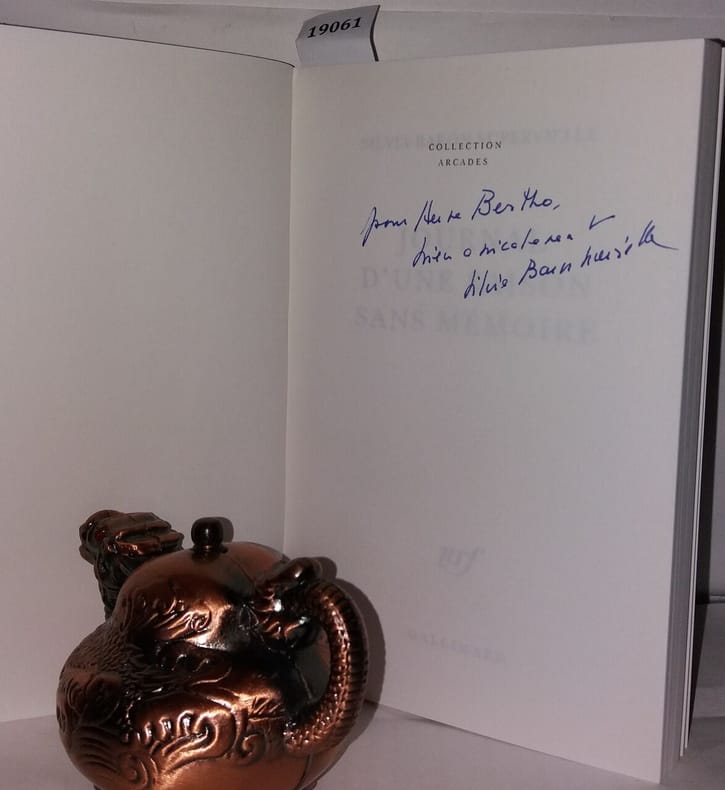 19061
SILVIA BARON SUPERVIELLE
COLLECTION
ARCADES
pour Herve Bertho,
bien amicalement
Silvia Baron Supervielle
JOURNAL
D'UNE SAISON
SANS MÉMOIRE
nrf
GALLIMARD